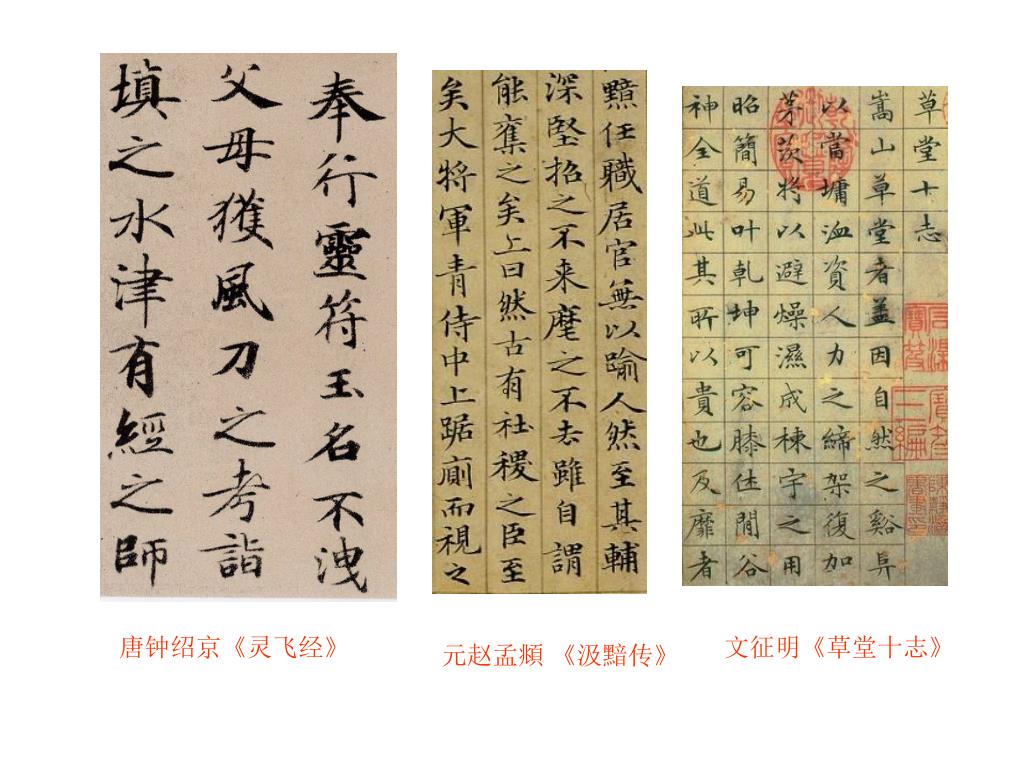 奉行靈符玉名不洩
父母獲風刀之考詣
填之水津有經之師
黯任職居官無以踰人然至其輔
深堅招之不来麾之不去雖自謂
能奪之矣上曰然古有社稷之臣至
矣大將軍青侍中上踞廁而視之
草堂十志
嵩山草堂者盖因自然之谿阜
以當墉洫資人力之締架復加
茅茨將以避燥濕成棟宇之用
昭簡易叶乾坤可容膝休閒谷
神全道此其所以貴也及靡者
唐钟绍京《灵飞经》
元赵孟頫 《汲黯传》
文征明《草堂十志》